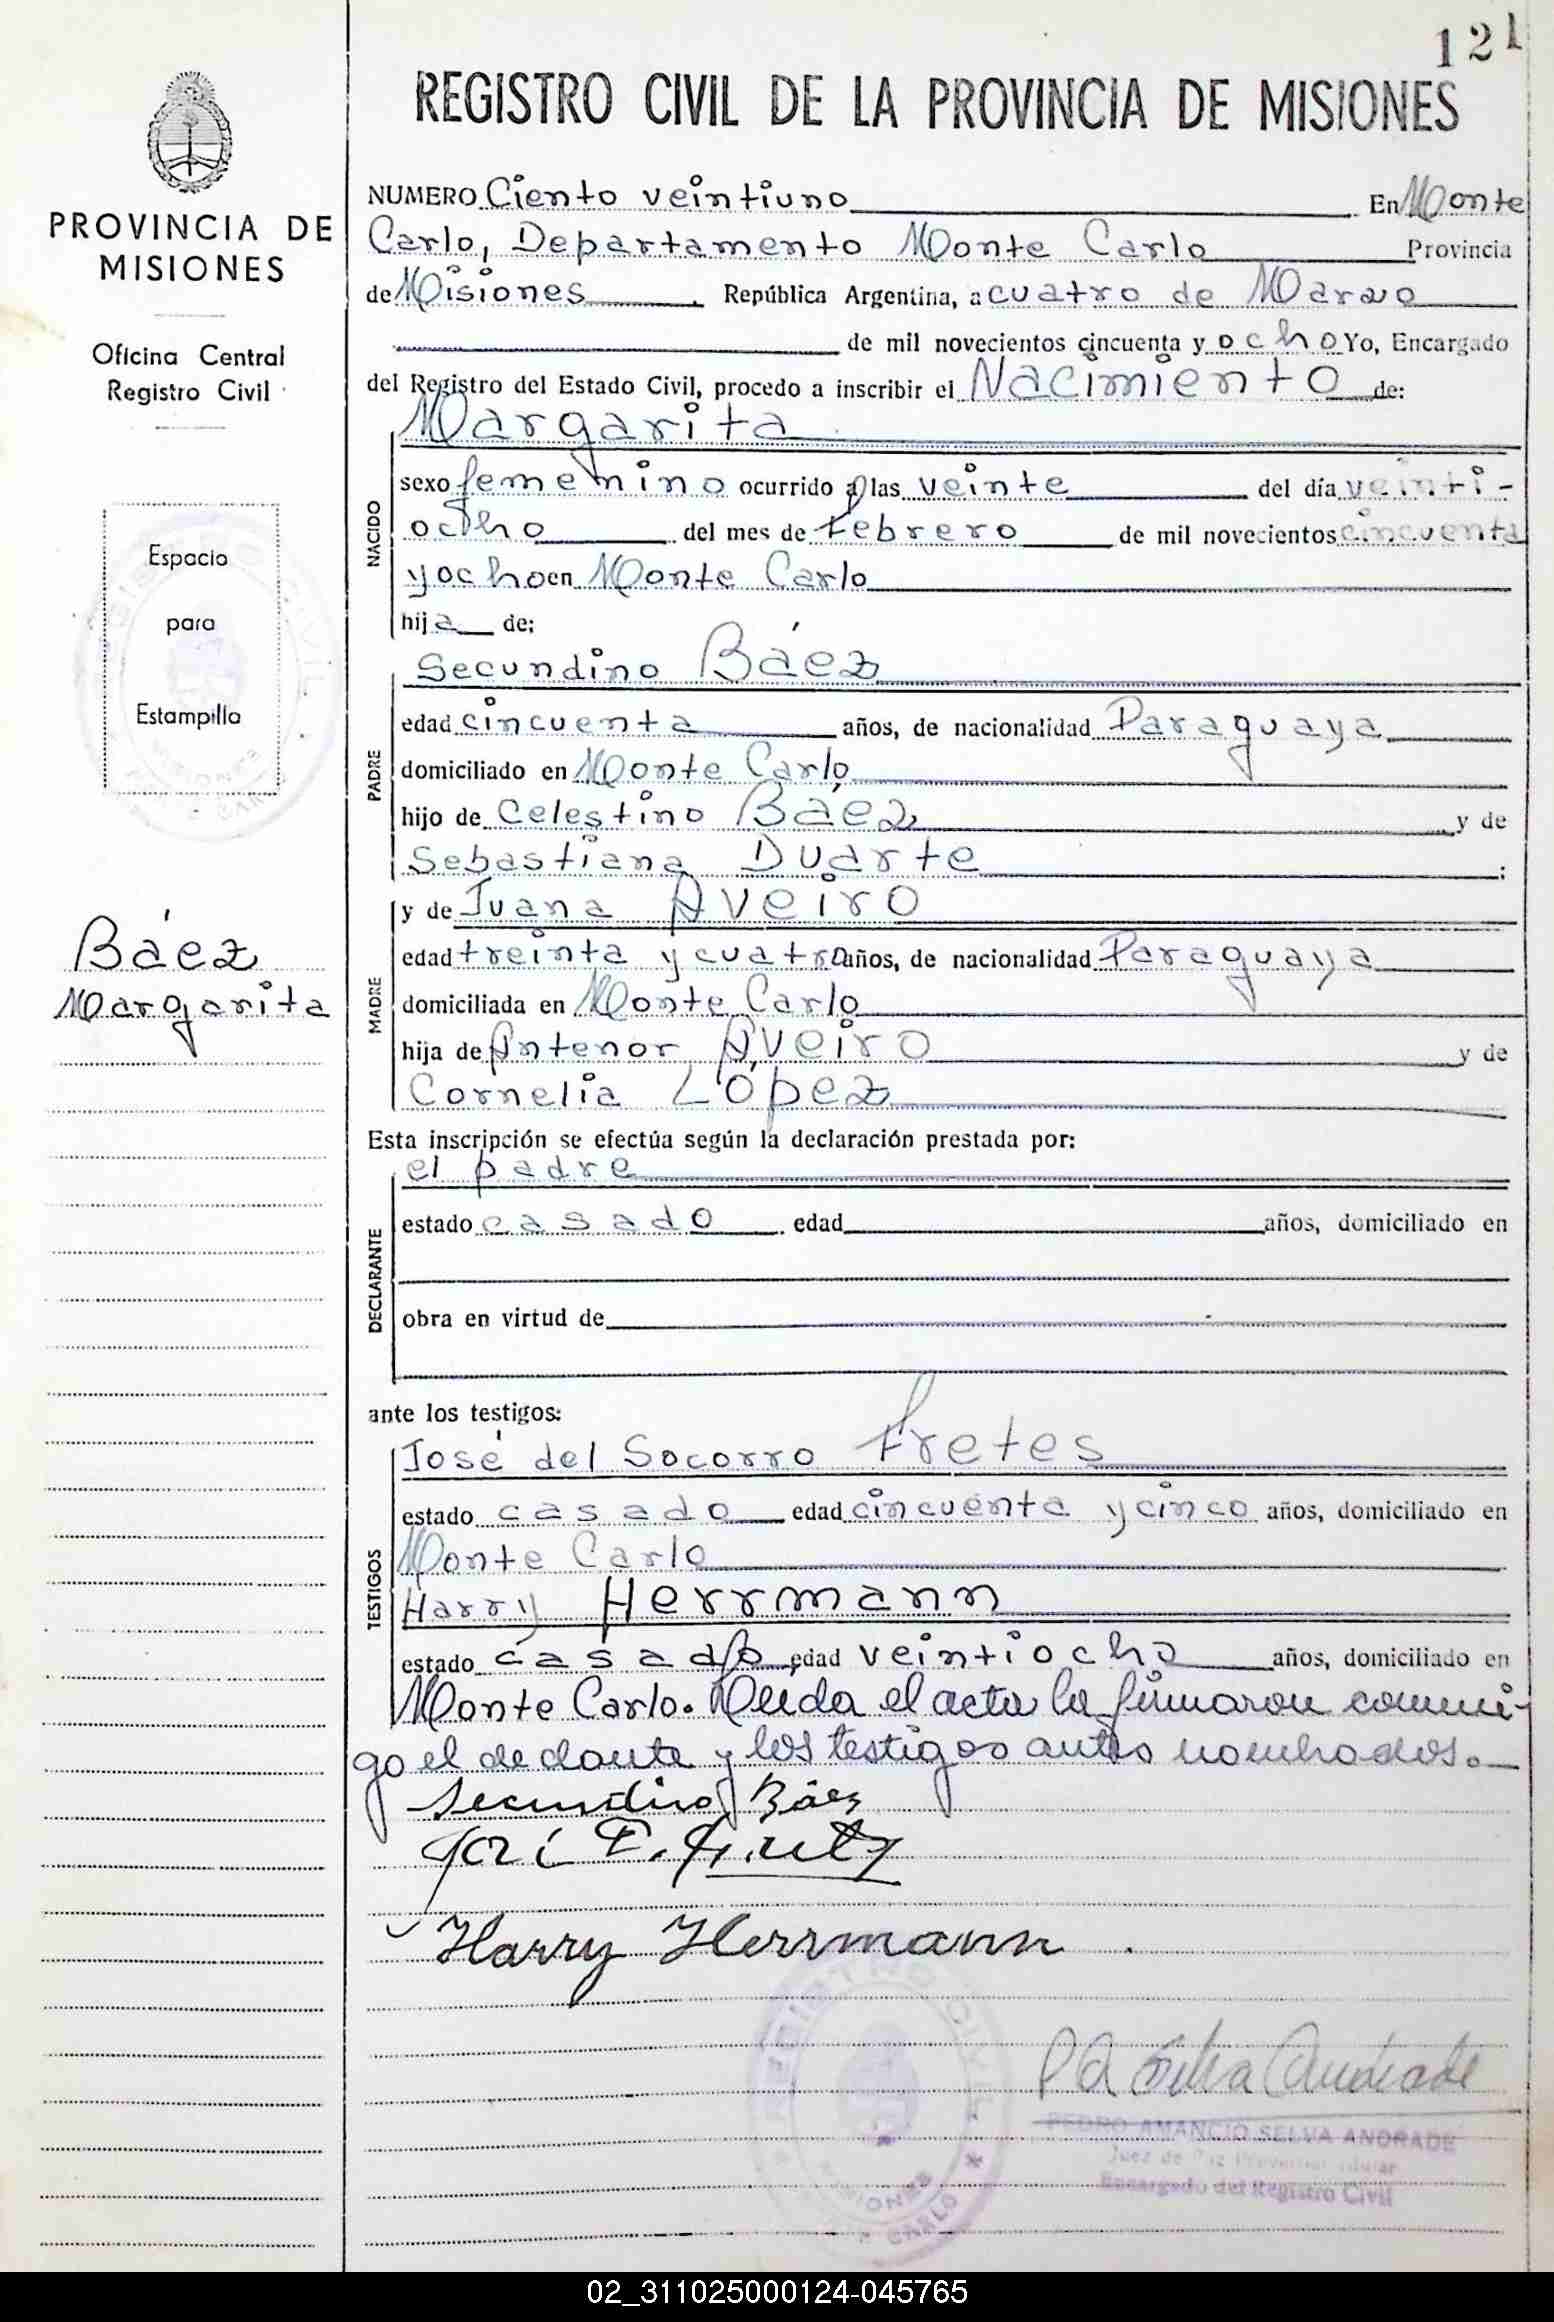 121
REGISTRO CIVIL DE LA PROVINCIA DE MISIONES
PROVINCIA DE
MISIONES
Oficina Central
Registro Civil
Espacio
para
Estampilla
Báez
Margarita
NUMERO Ciento veintiuno En Monte
Carlo, Departamento Monte Carlo Provincia
de Misiones República Argentina, a cuatro de Marzo
de mil novecientos cincuenta y ocho Yo, Encargado
del Registro del Estado Civil, procedo a inscribir el Nacimiento de:
Margarita
NACIDO
sexo femenino ocurrido a las veinte del día veinti-
ocho del mes de Febrero de mil novecientos cincuenta
y ocho en Monte Carlo
hija de:
Secundino Báez
PADRE
edad cincuenta años, de nacionalidad Paraguaya
domiciliado en Monte Carlo
hijo de Celestino Báez y de
Sebastiana Duarte ;
y de Juana Aveiro
MADRE
edad treinta y cuatro años, de nacionalidad Paraguaya
domiciliada en Monte Carlo
hija de Antenor Aveiro y de
Cornelia López
Esta inscripción se efectúa según la declaración prestada por:
el padre
DECLARANTE
estado casado edad años, domiciliado en
obra en virtud de
ante los testigos:
José del Socorro Fretes
TESTIGOS
estado casado edad cincuenta y cinco años, domiciliado en
Monte Carlo
Harry Herrmann
estado casado edad veintiocho años, domiciliado en
Monte Carlo. Leida el acta la firmaron conmi-
go el declante y los testigos antes nombrados.
Secundino Báez
Harry Herrmann
P A Selva Andrade
PEDRO AMANCIO SELVA ANDRADE
Juez de Paz
Encargado del Registro Civil
REGISTRO CIVIL
MISIONES
CARLO
02_311025000124-045765